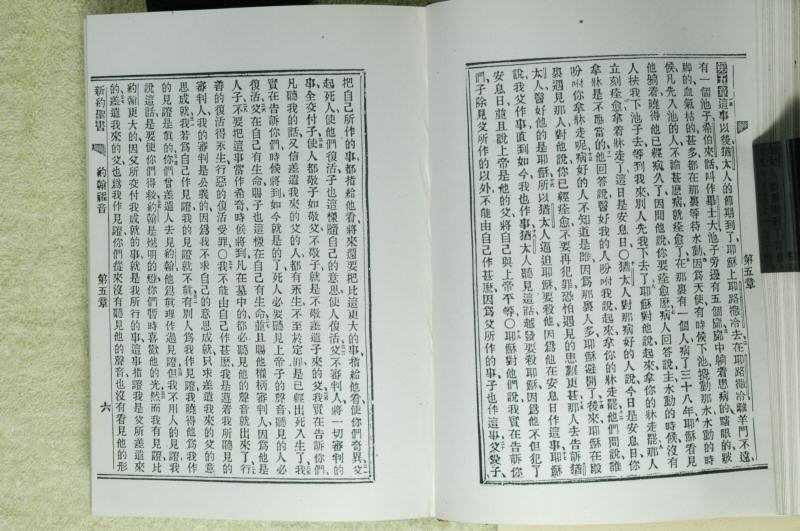 第五章這事以後猶太人的節期到了耶穌上耶路撒冷去在耶路撒冷離羊門不遠
有一個池子希伯來話叫作畢士大池子旁邊有五個廊廊中躺着患病的瞎眼的跛
脚的血氣枯的甚多都在那裏等待水動因爲天使有時候下池攪動那水水動的時
候凡先入池的人不論甚麽病就痊愈了在那裏有一個人病了三十八年耶穌看見
他躺着曉得他已經病久了因問他說你要痊愈麽病人回答說主水動的時候沒有
人扶我下池子去等到我來別人先我下去了耶穌對他說起來拿你的牀走罷那人
立刻痊愈拿着牀走了這日是安息日〇猶太人對那病好的人說今日是安息日你
拿牀是不應當的他回答說醫好我的人吩咐我說起來拿你的牀走罷他們問說誰
吩咐你拿牀走呢病好的人不知道是誰因爲那裏人多耶穌避開了後來耶穌在殿
裏遇見那人對他說你已經痊愈不要再犯罪恐怕遇見的患難更甚那人去告訴猶
太人醫好他的是耶穌所以猶太人逼迫耶穌要殺他因爲他在安息日作這事耶穌
說我父作事直到如今我也作事猶太人聽見這話越發要殺耶穌因爲他不但犯了
安息日並且說上帝是他的父將自己與上帝平等〇耶穌對他們說我實在告訴你
們子除見父所作的以外不能由自己作甚麽因爲父所作的事子也作這事父愛子
第五章
把自己所作的事都指給他看將來還要把比這更大的事指給他看使你們奇異父
起死人使他們復活子也這樣隨自己的意思使人復活父不審判人將一切審判的
事全交付子使人都敬子如敬父不敬子就是不敬差遣子來的父我實在告訴你們
凡聽我的話又信差遣我來的父的人都有永生不至於定罪是已經出死入生了我
實在告訴你們時候將到如今就是了死人必要聽見上帝子的聲音聽見的人必
復活父在自己有生命賜子也這樣在自己有生命並且賜他權柄審判人因爲他是
人子不要把這事當作希奇時候將到凡在墓中的都必聽見他的聲音就出來了行
善的復活得永生行惡的復活受罪〇我不能由自己作甚麽我是遵着我所聽見的
審判人我的審判是公義的因爲我不求自己的意思成就只求差遣我來的父的意
思成就我若爲自己作見證我的見證就不眞有別人爲我作見證我曉得他爲我作
的見證是眞的你們曾差遣人去見約翰他爲眞理作過見證但我不用人的見證我
說這話是要使你們得救約翰是燃明的燈你們暫時喜歡他的光然而我有見證比
約翰更大的因父所交付我成就的事就是我所行的事這事證我是父所差遣來
的差遣我來的父也爲我作見證你們從來沒有聽見他的聲音也沒有看見他的形
新約聖書 約翰福音 第五章 六